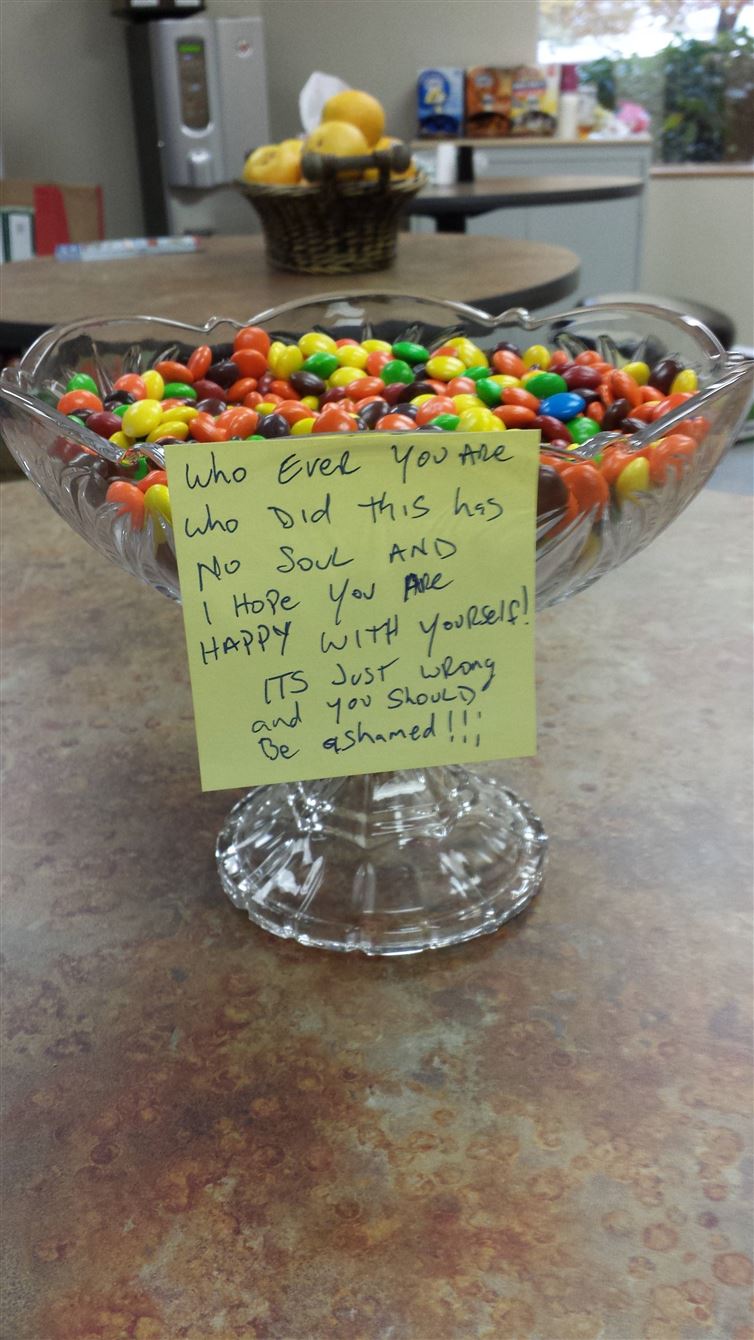 Who Ever You Are
who Did This has
No Soul AND
I Hope You ARe
HAPPY WITH YouRself!
ITS JusT wRong
and you ShoulD
Be ashamed!!!